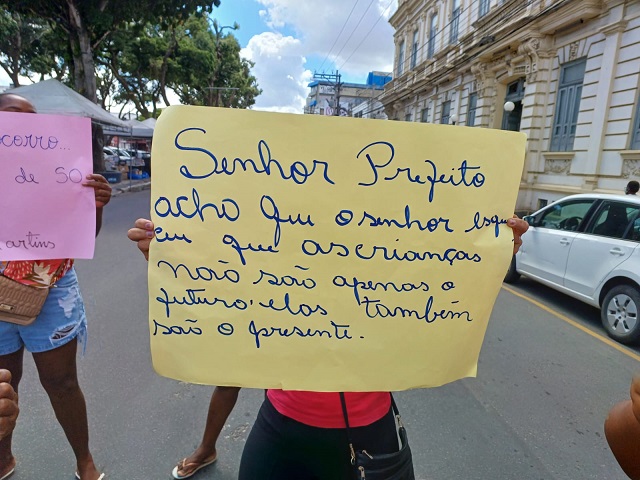 Senhor Prefeito
acho que o senhor esque
ceu que as crianças
não são apenas o
futuro, elas também
são o presente.
ocorro...
de so
artins